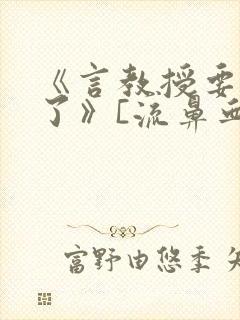 《言教授要
了》[流鼻
富野由悠季